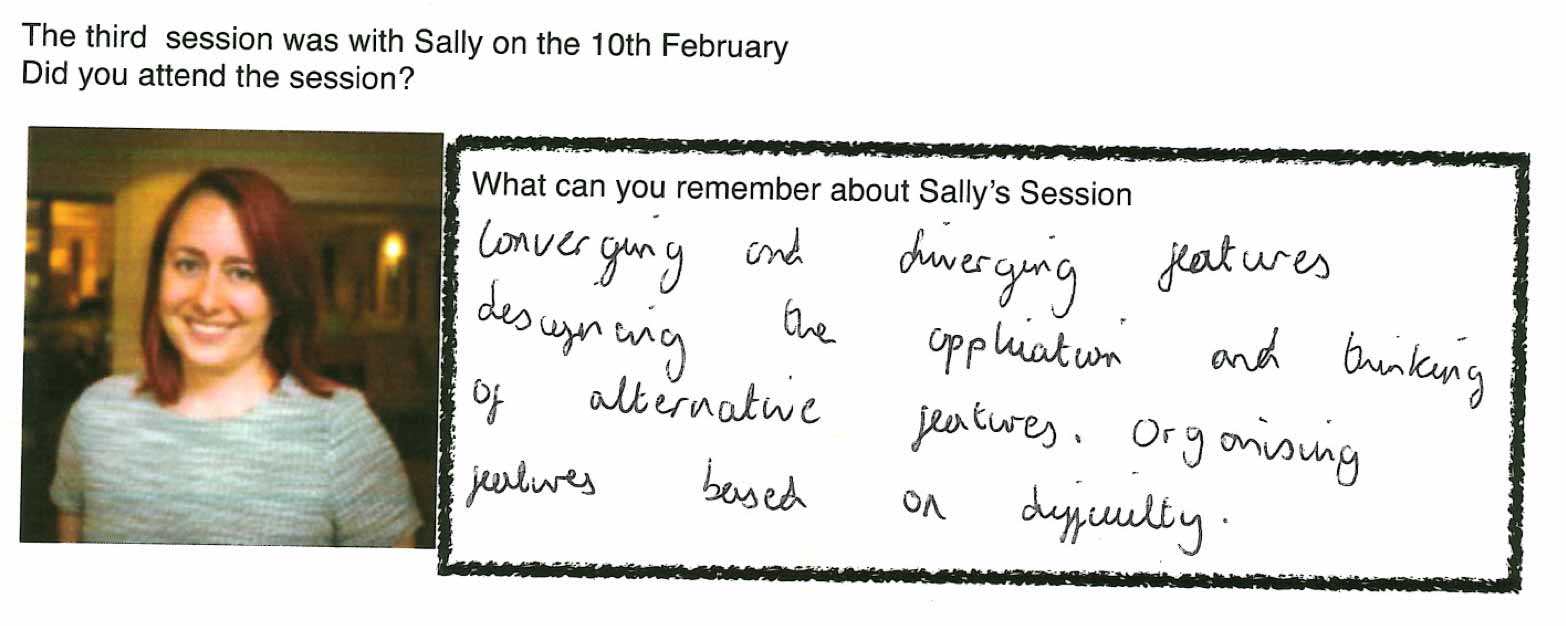 The third session was with Sally on the 10th February
Did you attend the session?
What can you remember about Sally's Session
Converging and diverging features
designing the application and thinking
of alternative features. Organising
features based on difficulty.